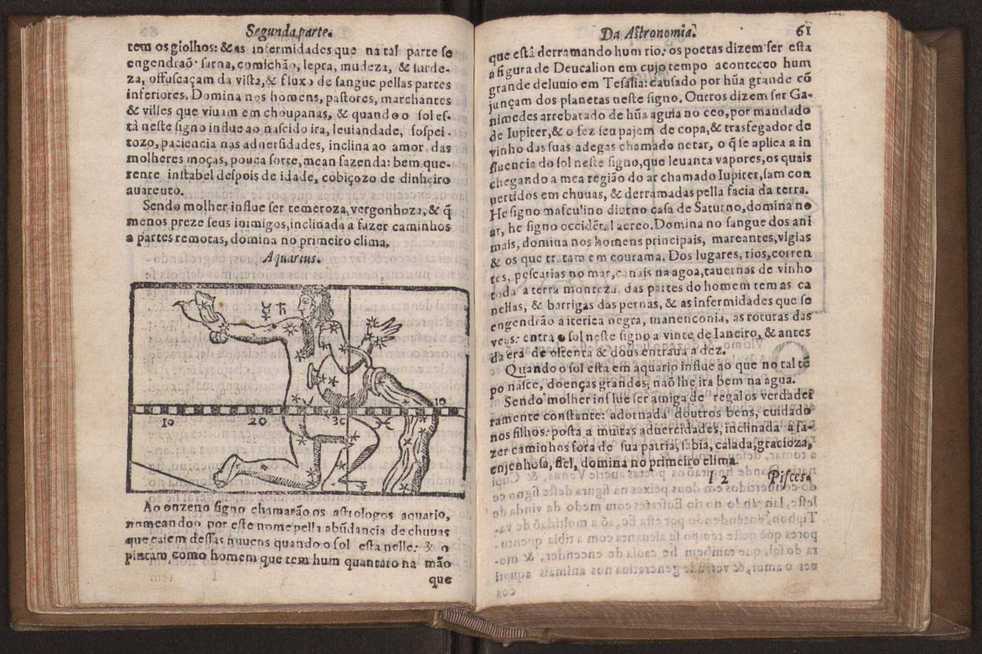 Segunda parte.
tem os giolhos: & as infermidades que na tal parte se
engendraõ: sarna, comichão, lepra, mudeza, & surde-
za, offuscaçam da vista, & fluxo de sangue pellas partes
inferiores. Domina nos homens, pastores, marchantes
& villes que viuam em choupanas, & quando o sol es-
tà neste signo influe ao nascido ira, leuiandade, sospei-
tozo, paciencia nas aduersidades, inclina ao amor das
molheres moças, pouca sorte, mean fazenda: bem que-
rente instabel despois de idade, cobiçozo de dinheiro
auarento.
Sendo molher influe ser temeroza, vergonhoza, & q̃
menos preze seus inimigos, inclinada a fazer caminhos
a partes remotas, domina no primeiro clima.
Aquarius.
☿ ♄
10 20 30 ♓ 10
Ao onzeno signo chamarão os astrologos aquario,
nomeando o por este nome pella abũdancia de chuuas
que caiem dessas nuuens quando o sol esta nelle: & o
pintam como homem que tem hum quantaro na mão
que
Da Astronomia. 61
que està derramando hum rio: os poetas dizem ser esta
a figura de Deucalion em cujo tempo aconteceo hum
grande deluuio em Tesalia: causado por hũa grande cõ
junçam dos planetas neste signo. Outros dizem ser Ga-
nimedes arrebatado de hũa aguia no ceo, por mandado
de Iupiter, & o fez seu pajem de copa, & trasfegador do
vinho das suas adegas chamado netar, o q̃ se aplica a in
fluencia do sol neste signo, que leuanta vapores, os quais
chegando a mea região do ar chamado Iupiter, sam con
uertidos em chuuas, & derramadas pella facia da terra.
He signo masculino diurno casa de Saturno, domina no
ar, he signo occidẽtal aereo. Domina no sangue dos ani
mais, domina nos homens principais, mareantes, vigias
& os que tratam em courama. Dos lugares, rios, corren
tes, pescarias no mar, canais na agoa, tauernas de vinho
toda a terra monteza, das partes do homem tem as ca
nellas, & barrigas das pernas, & as infermidades que se
engendrão a iterica negra, manenconia, as roturas das
veas: entra o sol neste signo a vinte de Ianeiro, & antes
da era de oitenta & dous entraua a dez.
Quando o sol esta em aquario influe ao que no tal tẽ
po nasce, doenças grandes, não lhe ira bem na agua.
Sendo molher influe ser amiga de regalos verdadei
ramente constante: adornada doutros bens, cuidado
nos filhos: posta a muitas aduersidades, inclinada a fa-
zer caminhos fora de sua patria, sabia, calada, gracioza,
enjenhosa, fiel, domina no primeiro clima.
I 2 Pisces.